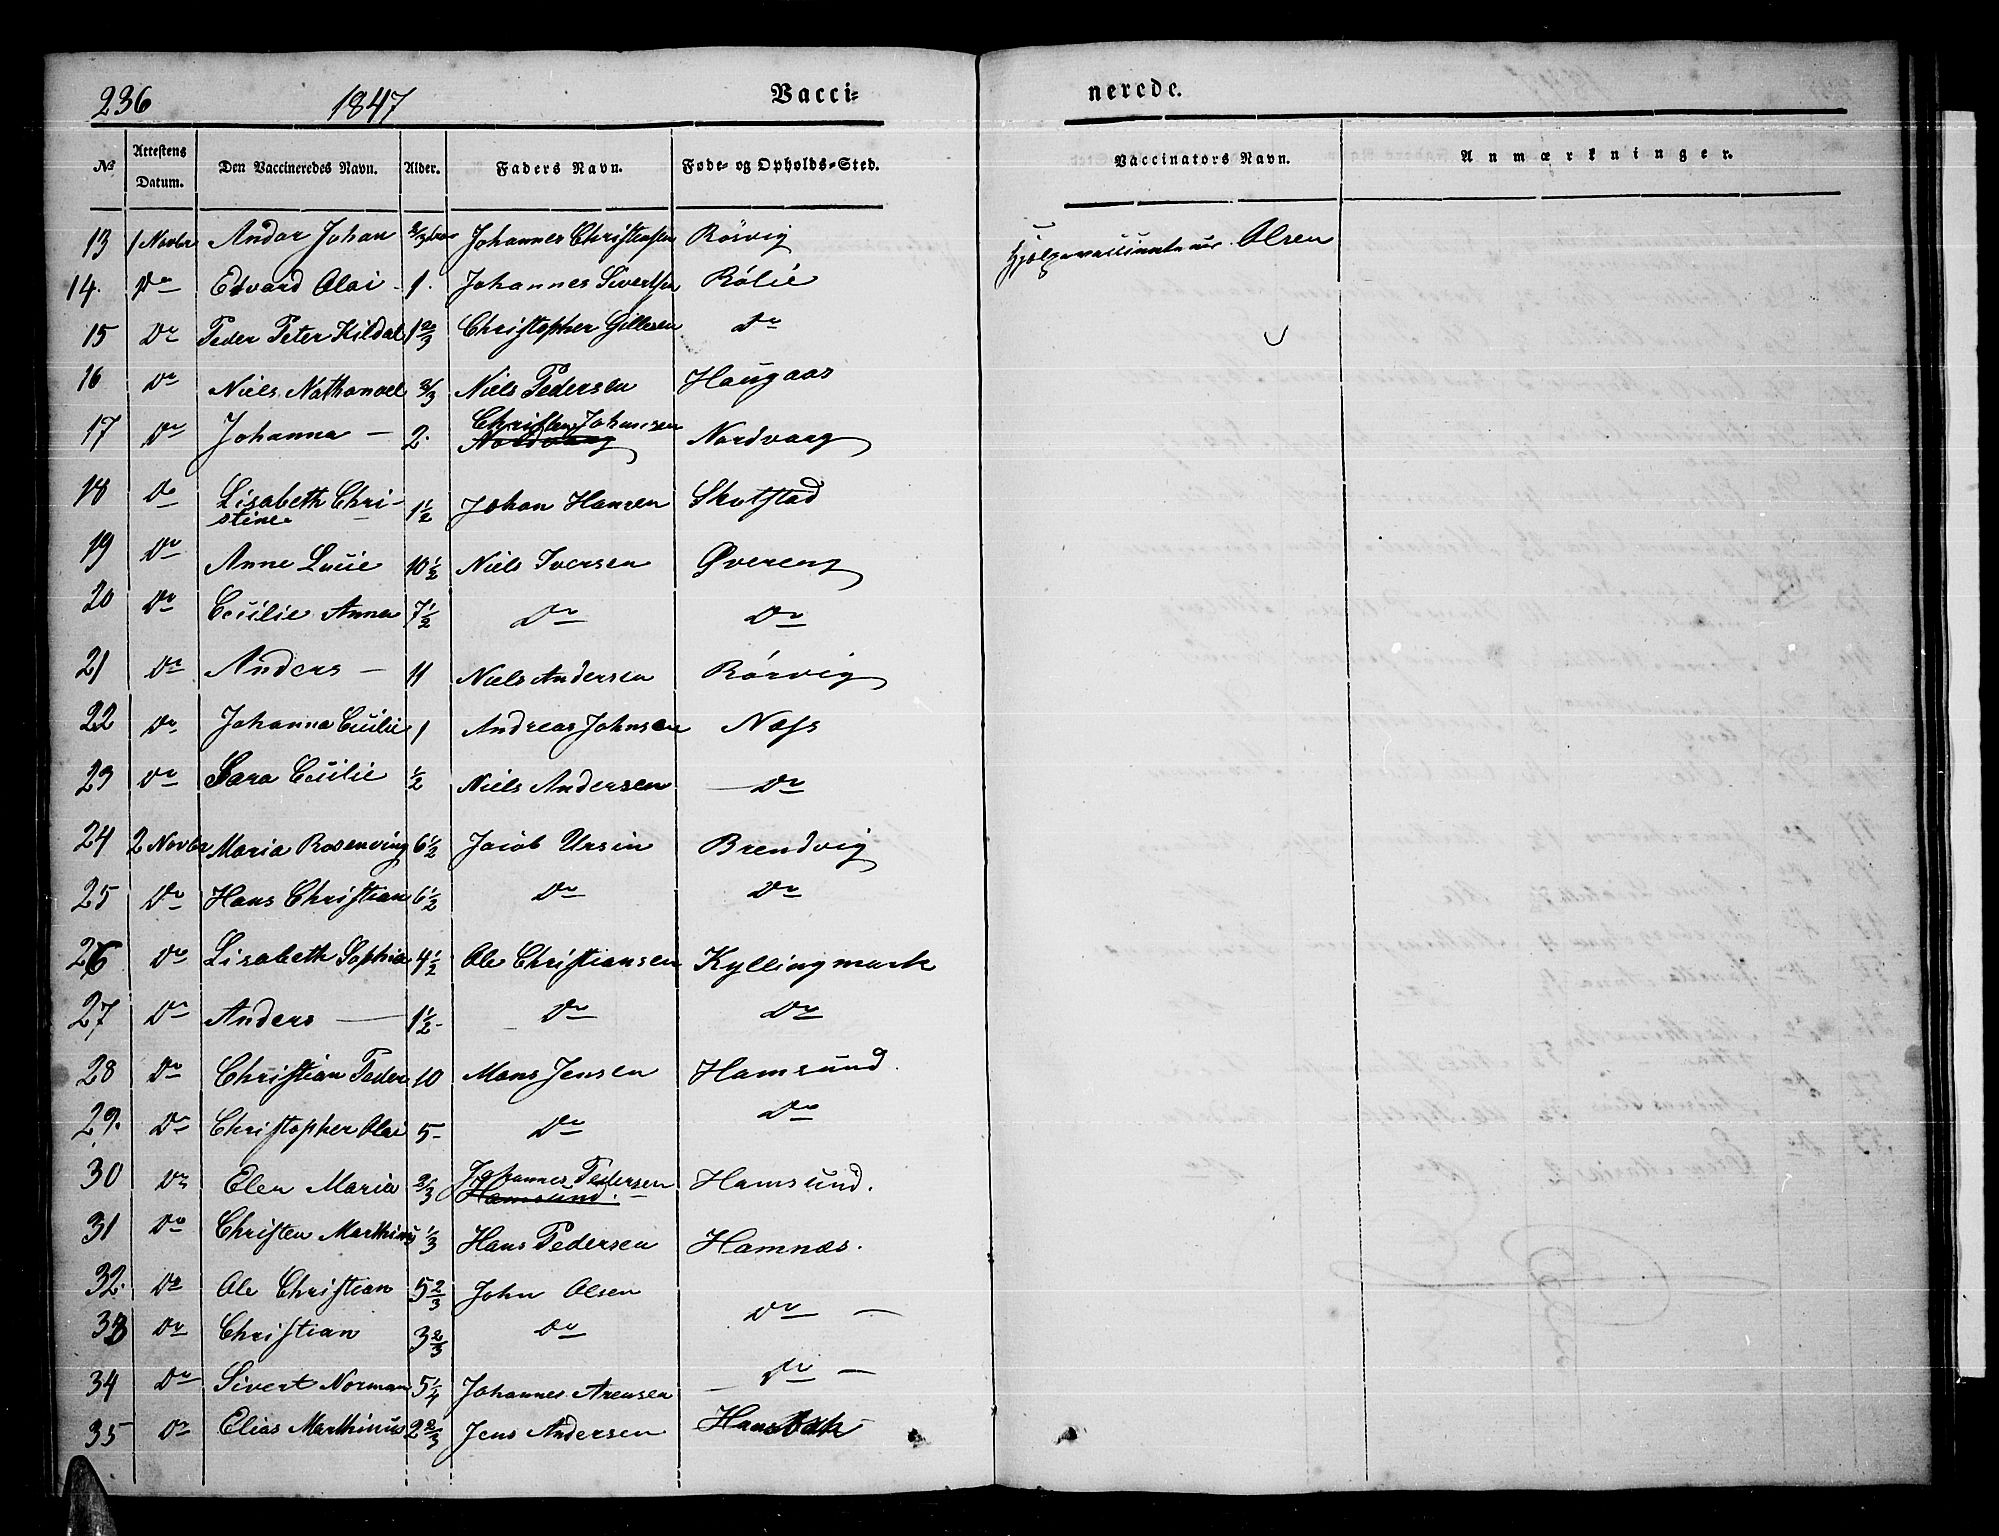 236 1847 Vacci- nerede.
No Attestens Datum. Den Vaccineredes Navn. Alder. Faders Navn. Føde- og Opholds-Sted. Vaccinators Navn. Anmærkninger.
13 1 Novbr Andor Johan 2/3 Johannes Christensen Rösvig Hjelpevaccinateur Olsen
14. Do Edvard Olai - 1. Johannes Sivertsen Rölie
15 Do Peder Peter Kildal 1 2/3 Christopher Gillesen Do
16 Do Niels Nathanael 2/3 Niels Pedersen Haugaas
17 Do Johanna - 2. Christen Johansen Nordvaag Nordvaag
18 Do Lisabeth Chri-
stine 1 1/2 Johan Hansen Skotstad
19 Do Anne Lucie 10 1/2 Niels Iversen Øvereng
20 Do Cecilie Anna 7 1/2 Do Do
21 Do Anders - 11 Niels Andersen Rörvig
22 Do Johanna Cecilie 1 Andreas Johnsen Næss
23 Do Sara Cecilie 1/2 Niels Andersen Do
24 2 Novbr Maria Rosenving 6 1/2 Jacob Ursin Brendvig
25 Do Hans Christian 6 1/2 Do Do
26 Do Lisabeth Sophia 4 1/2 Ole Christiansen Kyllingmark
27 Do Anders - 1 1/2 Do Do
28 Do Christian Peder 10 Mons Jensen Hamsund
29. Do Christopher Olai 5 - Do Do
30 Do Elen Maria 2/3 Johannes Pedersen Hamsund. Hamsund.
31 Do Christen Marthinus 1/3 Hans Pedersen Hamnæs.
32. Do Ole Christian 5 2/3 John Olsen Do -
33 Do Christian 3 2/3 Do
34 Do Sivert Norman 5 1/4 Johannes Arensen Do -
35 Do Elias Marthinus 2 2/3 Jens Andersen